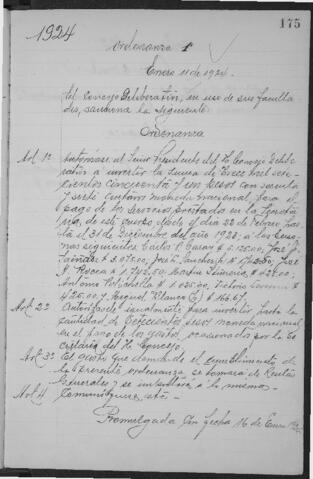 175
1924
Ordenanza 1
Enero 11 de 1924.
El Concejo Deliberativo, en uso de sus faculta
des, sanciona la siguiente
Ordenanza
Art. 1º Autorízase al Señor Presidente del H. Concejo Delibe
rativo a invertir la suma de Trece mil sete
cientos cincuenta y un pesos con
y siete centavos moneda nacional, para el
pago de los servicios prestados en la
de este desde el día 22 de Febrero
el 31 de Diciembre del año 1923, a las perso
nas siguientes: Carlos P. $ 5.125.00; José
$ 3.075.00; José
A. $ 1.742.50; Martín
Antonio $ 1.025.00; Victorio
$ 425.00 y Miguel Blanco $ 166.67
Art. 2º Autorízase igualmente para invertir hasta la
cantidad de pesos moneda nacional
en el pago de los gastos ocasionados por la Se
cretaría del H. Concejo.
Art. 3º El gasto que demande el cumplimiento de
la presente ordenanza se tomará de Rentas
Generales y se imputará a la misma.
Art. 4 Comuníquese, etc.
Promulgada con fecha 16 de Enero